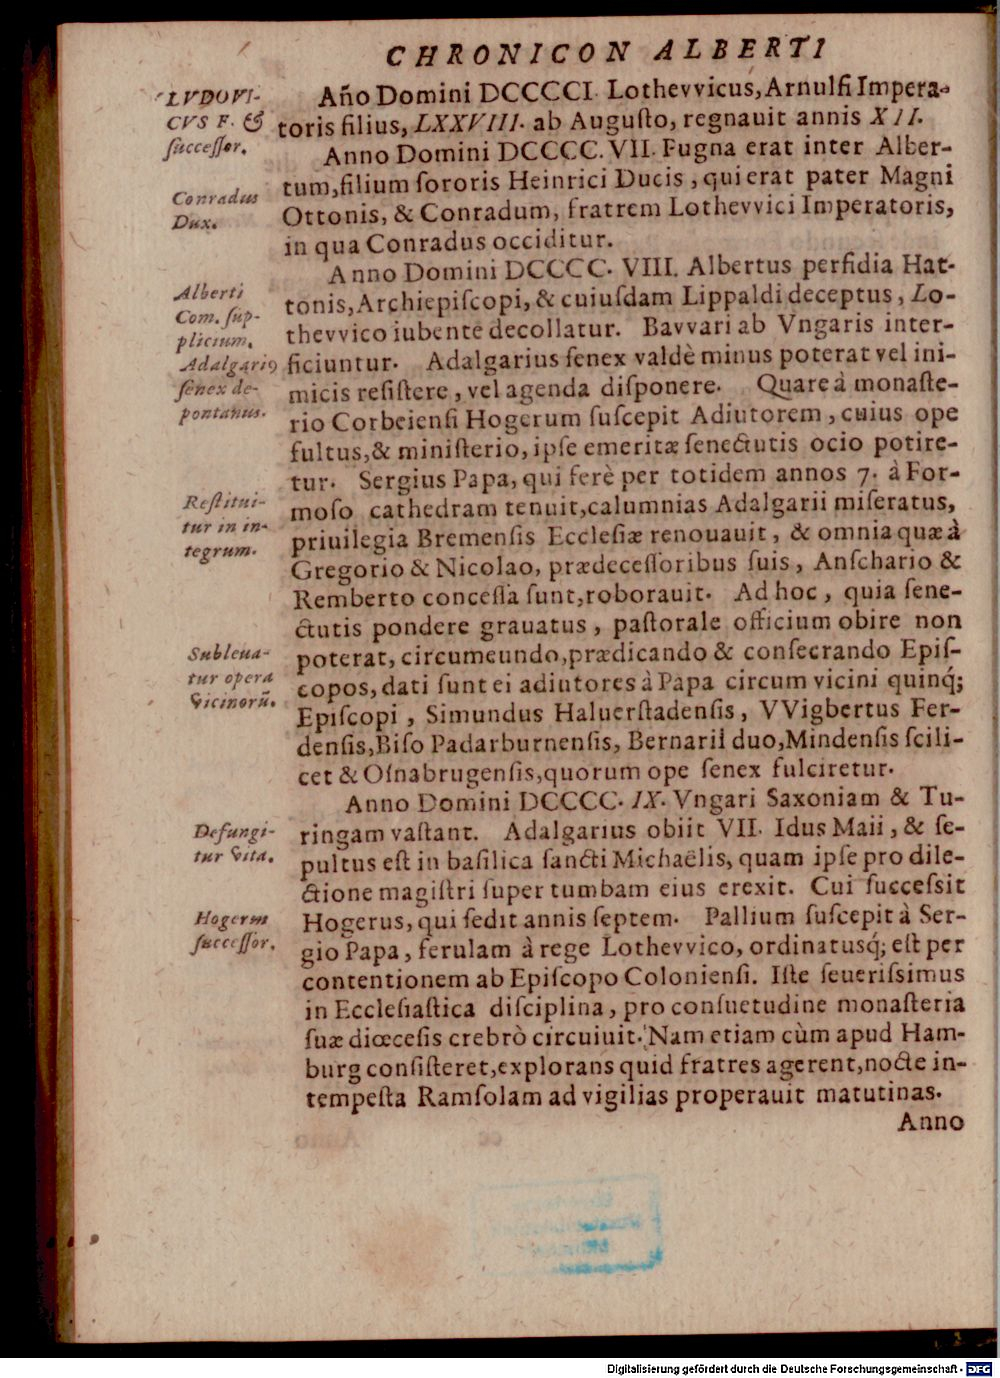 CHRONICON ALBERTI
LVDOVI-
CVS F. &
ſucceſſor.
Año Domini DCCCCI. Lothevvicus, Arnulfi Impera-
toris filius, LXXVIII. ab Auguſto, regnauit annis XII.
Anno Domini DCCCC. VII. Pugna erat inter Alber-
Conradus
Dux.
tum, filium ſororis Heinrici Ducis, qui erat pater Magni
Ottonis, & Conradum, fratrem Lothevvici Imperatoris,
in qua Conradus occiditur.
Alberti
Com. ſup-
plicium.
Anno Domini DCCCC. VIII. Albertus perfidia Hat-
tonis, Archiepiſcopi, & cuiuſdam Lippaldi deceptus, Lo-
thevvico iubente decollatur. Bavvari ab Vngaris inter-
Adalgariꝰ
ſenex de-
pontanus.
ficiuntur. Adalgarius ſenex valdè minus poterat vel ini-
micis reſiſtere, vel agenda diſponere. Quare à monaſte-
rio Corbeienſi Hogerum ſuſcepit Adiutorem, cuius ope
fultus, & miniſterio, ipſe emeritæ ſenectutis ocio potire-
tur. Sergius Papa, qui ferè per totidem annos 7. à For-
Reſtitui-
tur in in-
tegrum.
moſo cathedram tenuit, calumnias Adalgarii miſeratus,
priuilegia Bremenſis Eccleſiæ renouauit, & omnia quæ à
Gregorio & Nicolao, prædeceſſoribus ſuis, Anſchario &
Remberto conceſſa ſunt, roborauit. Ad hoc, quia ſene-
ctutis pondere grauatus, paſtorale officium obire non
Subleua-
tur opera
vicinorũ.
poterat, circumeundo, prædicando & conſecrando Epiſ-
copos, dati ſunt ei adiutores à Papa circum vicini quinq́;
Epiſcopi, Simundus Haluerſtadenſis, VVigbertus Fer-
denſis, Biſo Padarburnenſis, Bernarii duo, Mindenſis ſcili-
cet & Oſnabrugenſis, quorum ope ſenex fulciretur.
Anno Domini DCCCC. IX. Vngari Saxoniam & Tu-
Defungi-
tur vita.
ringam vaſtant. Adalgarius obiit VII. Idus Maii, & ſe-
pultus eſt in baſilica ſancti Michaëlis, quam ipſe pro dile-
ctione magiſtri ſuper tumbam eius erexit. Cui ſucceſsit
Hogerus
ſucceſſor.
Hogerus, qui ſedit annis ſeptem. Pallium ſuſcepit à Ser-
gio Papa, ferulam à rege Lothevvico, ordinatusq́; eſt per
contentionem ab Epiſcopo Colonienſi. Iſte ſeueriſsimus
in Eccleſiaſtica diſciplina, pro conſuetudine monaſteria
ſuæ diœceſis crebrò circuiuit. Nam etiam cùm apud Ham-
burg conſiſteret, explorans quid fratres agerent, nocte in-
tempeſta Ramſolam ad vigilias properauit matutinas.
Anno
Digitalisierung gefördert durch die Deutsche Forschungsgemeinschaft - DFG